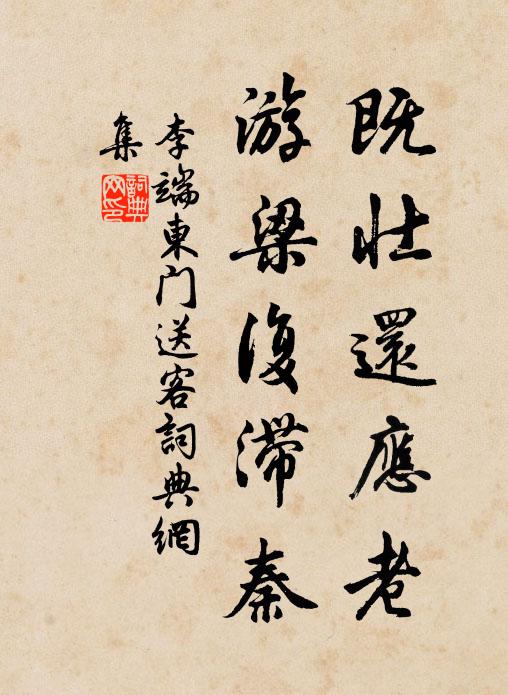 既壮還應老
游梁復滯秦
李端東門送客詞典網
集
詞典
网印